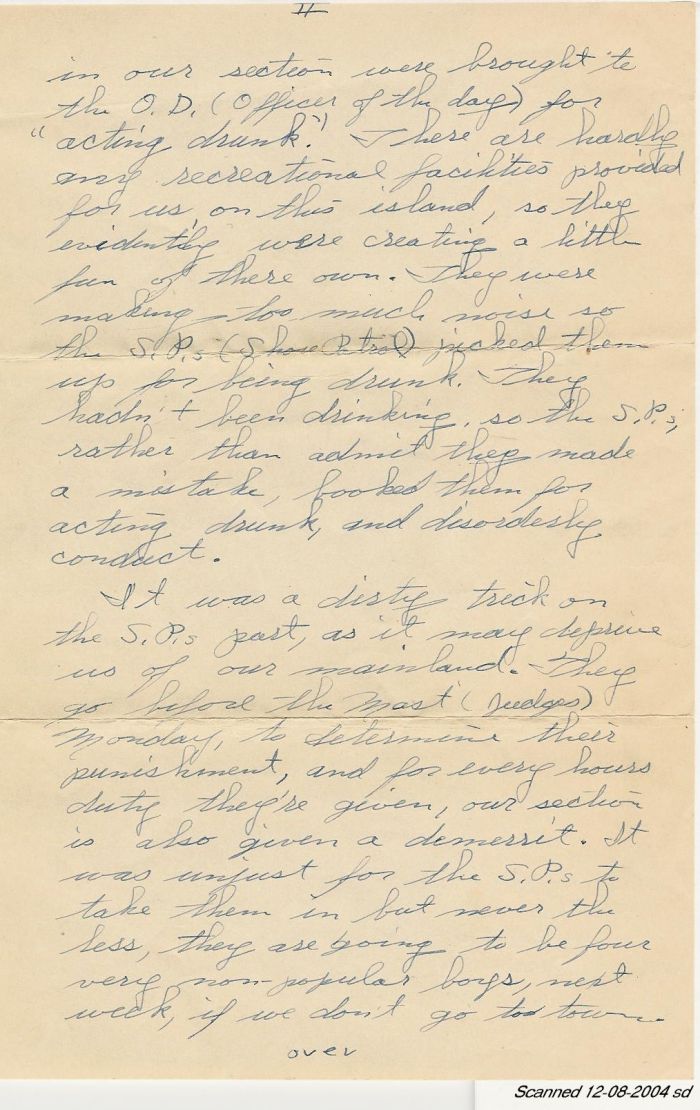 II
in our section were brought to
the O.D. (Officer of the day) for
"acting drunk." There are hardly
any recreational facilities provided
for us, on this island, so they
evidently were creating a little
fun of there own. They were
making too much noise so
the S.P.s (Shore Patrol) picked them
up for being drunk. They
hadn't been drinking, so the S.P.s,
rather than admit they made
a mistake, booked them for
acting drunk, and disorderly
conduct.
It was a dirty trick on
the S.P.s part, as it may deprive
us of our mainland. They
go before the Mast (Judges)
Monday, to determine their
punishment, and for every hours
duty they're given, our section
is also given a demerrit. It
was unjust for the S.P.s to
take them in but never the
less, they are going to be four
very non-popular boys, next
week, if we don't go to town.
over
Scanned 12-08-2004 sd